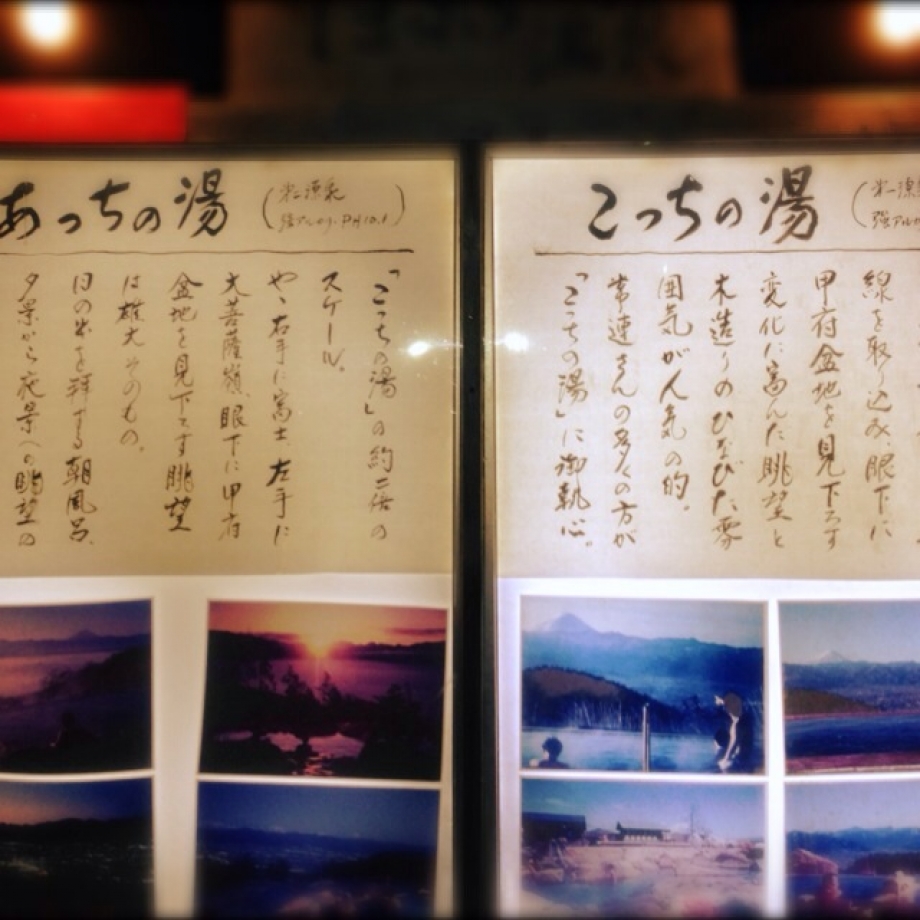 こっちの湯
(第一源泉
強アルカ
線を取り込み、眼下に
甲府盆地を見下ろす
変化に富んだ眺望と
木造りのひなびた雰
囲気が人気の的。
常連さんの多くの方が
「こっちの湯」に御執心。
あっちの湯
(第二源泉
強アルカリ. PH10.1)
「こっちの湯」の約二倍の
スケール。
やゝ右手に富士、左手に
大菩薩嶺、眼下に甲府
盆地を見下ろす眺望
は雄大そのもの。
日の出を拝する朝風呂、
夕景から夜景への眺望の